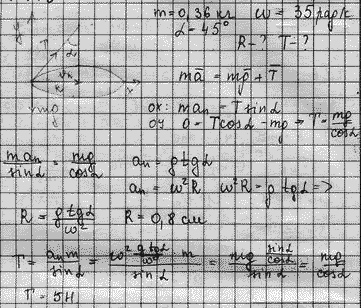 m=0,36 кг ω = 35 рад/с
α=45°
R-? T-?
y
T
α
R
x
mg
ma̅ = mg̅ + T̅
ox: maₙ = T sinα
oy 0=T cosα - mg ⇒ T= mg/cosα
maₙ/sinα = mg/cosα aₙ = g tgα
aₙ = ω²R ω²R = g tgα =>
R = g tgα/ω² R = 0,8 см
T = aₙm/sinα = ω² g tgα/ω² m/sinα = mg sinα/cosα/sinα = mg/cosα
T = 5Н